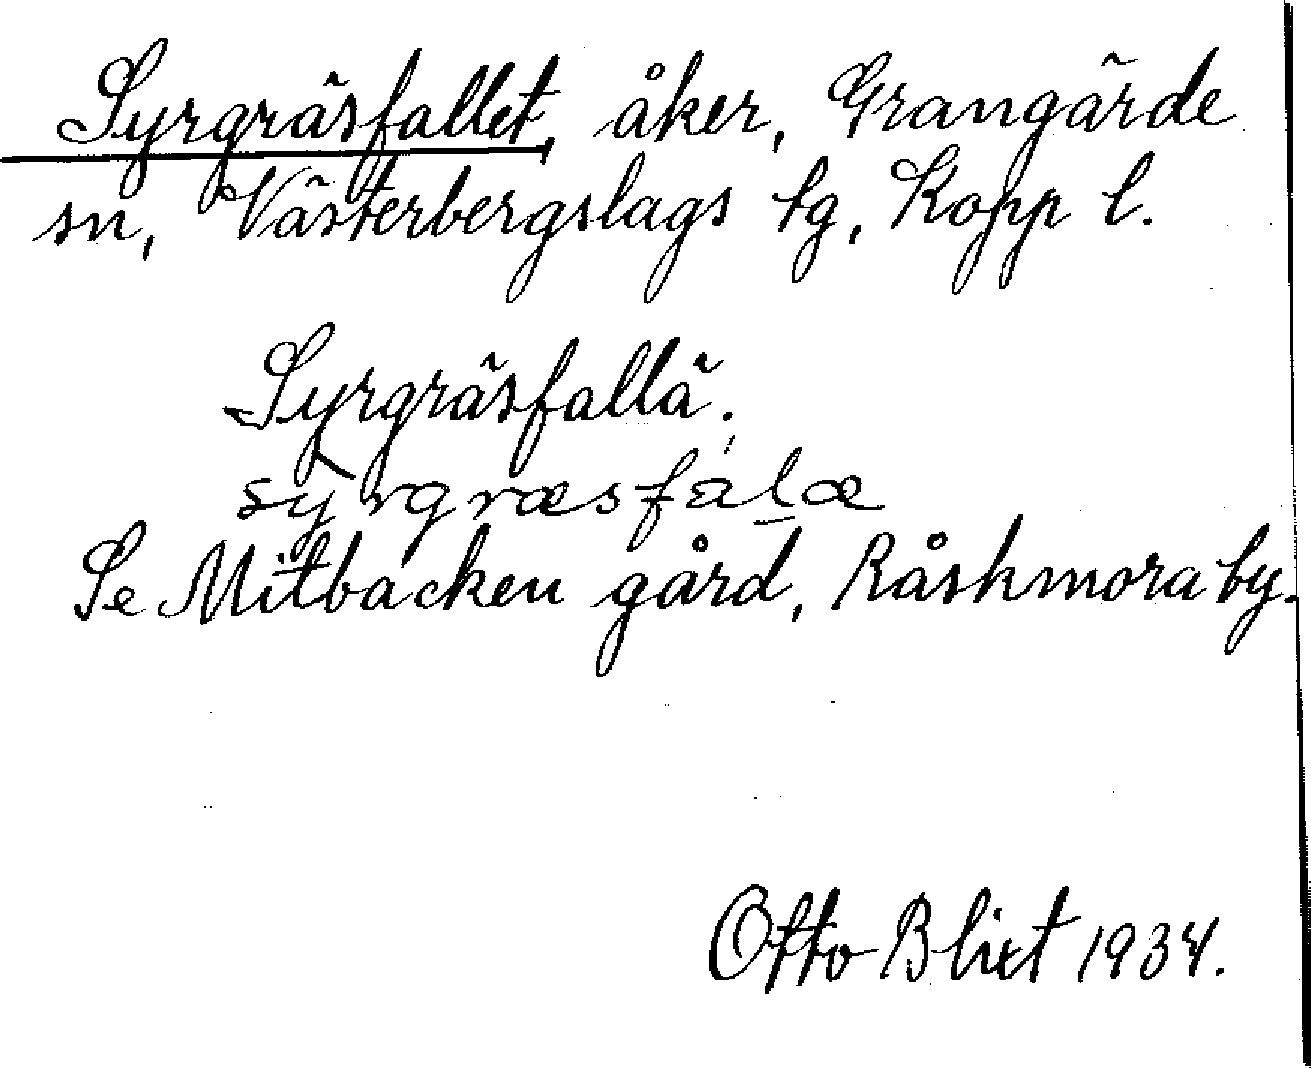 Syrgräsfallet, åker, Grangärde
sn, Västerbergslags tg, Kopp l.
Syrgräsfallä.
syrgræsfalæ
Se Mitbacken gård, Råshmora by.
Otto Blixt 1934.